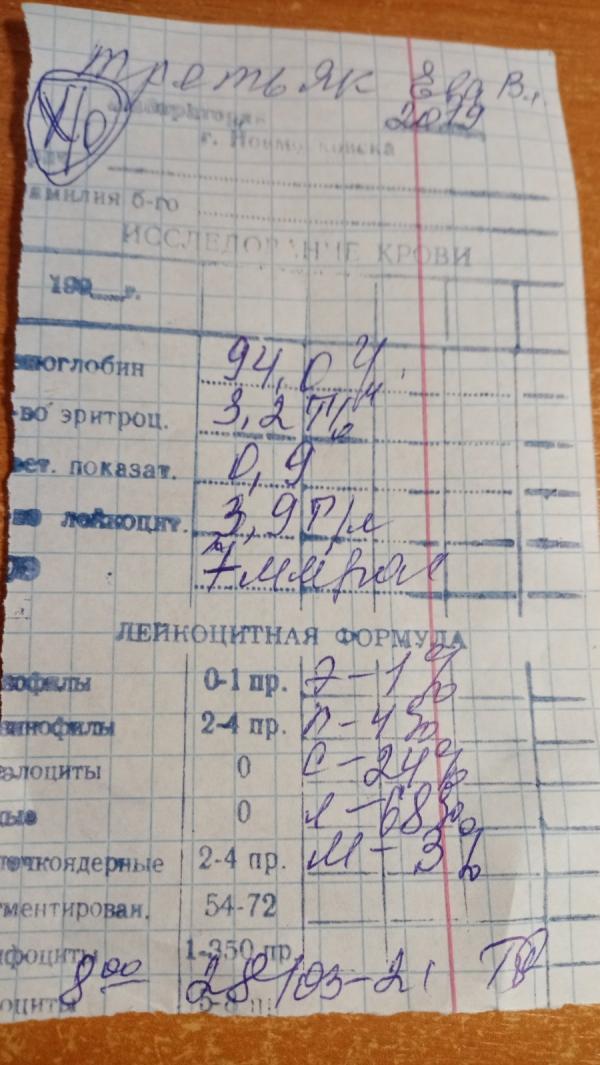 Третьяк Ева В.
х/о 2019
г. Новомосковска
амилия б-го
ИССЛЕДОВАНИЕ КРОВИ
199 г.
моглобин 94,0 г/л
-во эритроц. 3,2 Т/л
вет. показат. 0,9
во лейкоцит. 3,9 Г/л
7 мм/час
ЛЕЙКОЦИТНАЯ ФОРМУЛА
зофилы 0-1 пр. Э-1%
зинофилы 2-4 пр. П-4%
елоциты 0 С-24%
ные 0 Л-68%
точкоядерные 2-4 пр. М-3%
гментирован. 54-72
мфоциты 1-350 пр.
8 00 28/03-21
оциты 5-8 п